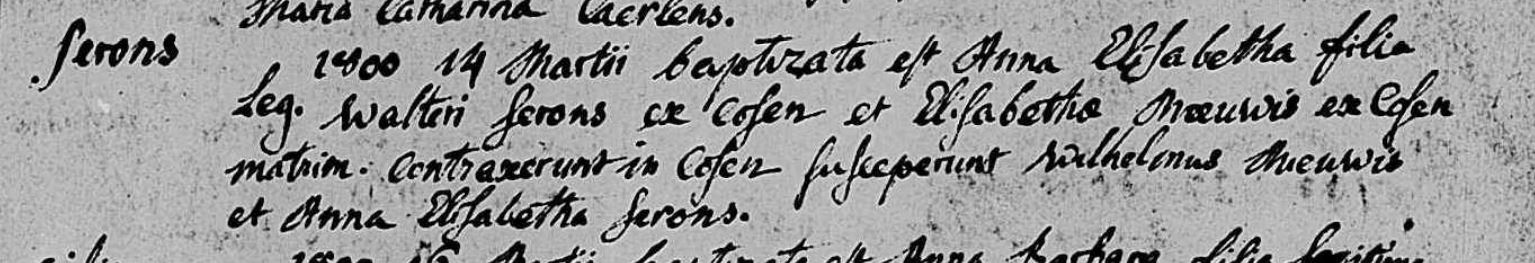 Maria Catharina Caerlens.
Serons
1800 14 Martii baptizata est Anna Elisabetha filia
Leg. Walteri Serons ex Cosen et Elisabethæ Mæuwis ex Cosen
matrim. Contraxerunt in Cosen susceperunt Wilhelmus Mieuwis
et Anna Elisabetha Serons.
Martii baptizata est Anna Barbara filia legitima